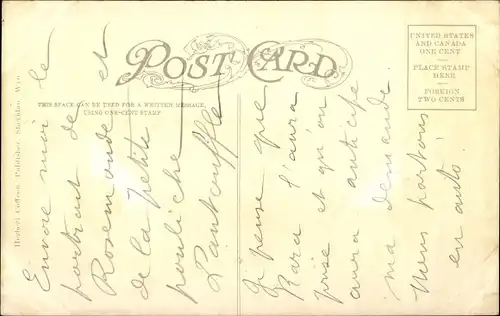 POST CARD
THIS SPACE CAN BE USED FOR A WRITTEN MESSAGE,
USING ONE-CENT STAMP
UNITED STATES
AND CANADA
ONE CENT
PLACE STAMP
HERE
FOREIGN
TWO CENTS
Herbert Coffeen, Publisher, Sheridan, Wyo.
Envoie moi le
portrait de
Rosemonde et
de la petite
pouliche
Pantoufle
Je pense que
Rara l'aura
prise et qu'on
aura anticipé
ma demande.
Nous partons
en auto.